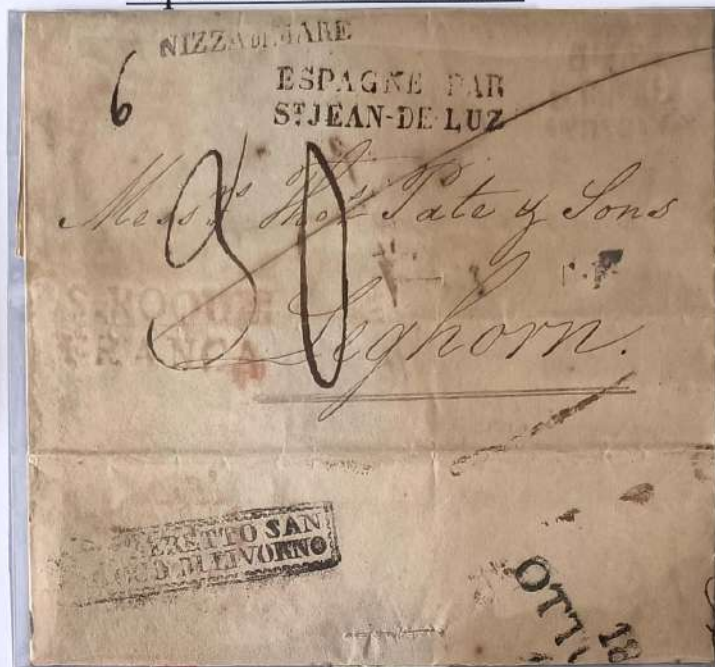 NIZZA DI MARE
6
ESPAGNE PAR
Sᵀ JEAN-DE-LUZ
Messrs Thos Pate y Sons
90
S. ROQUE
FRANCA
Leghorn.
SAN
DI LIVORNO
OTT
18